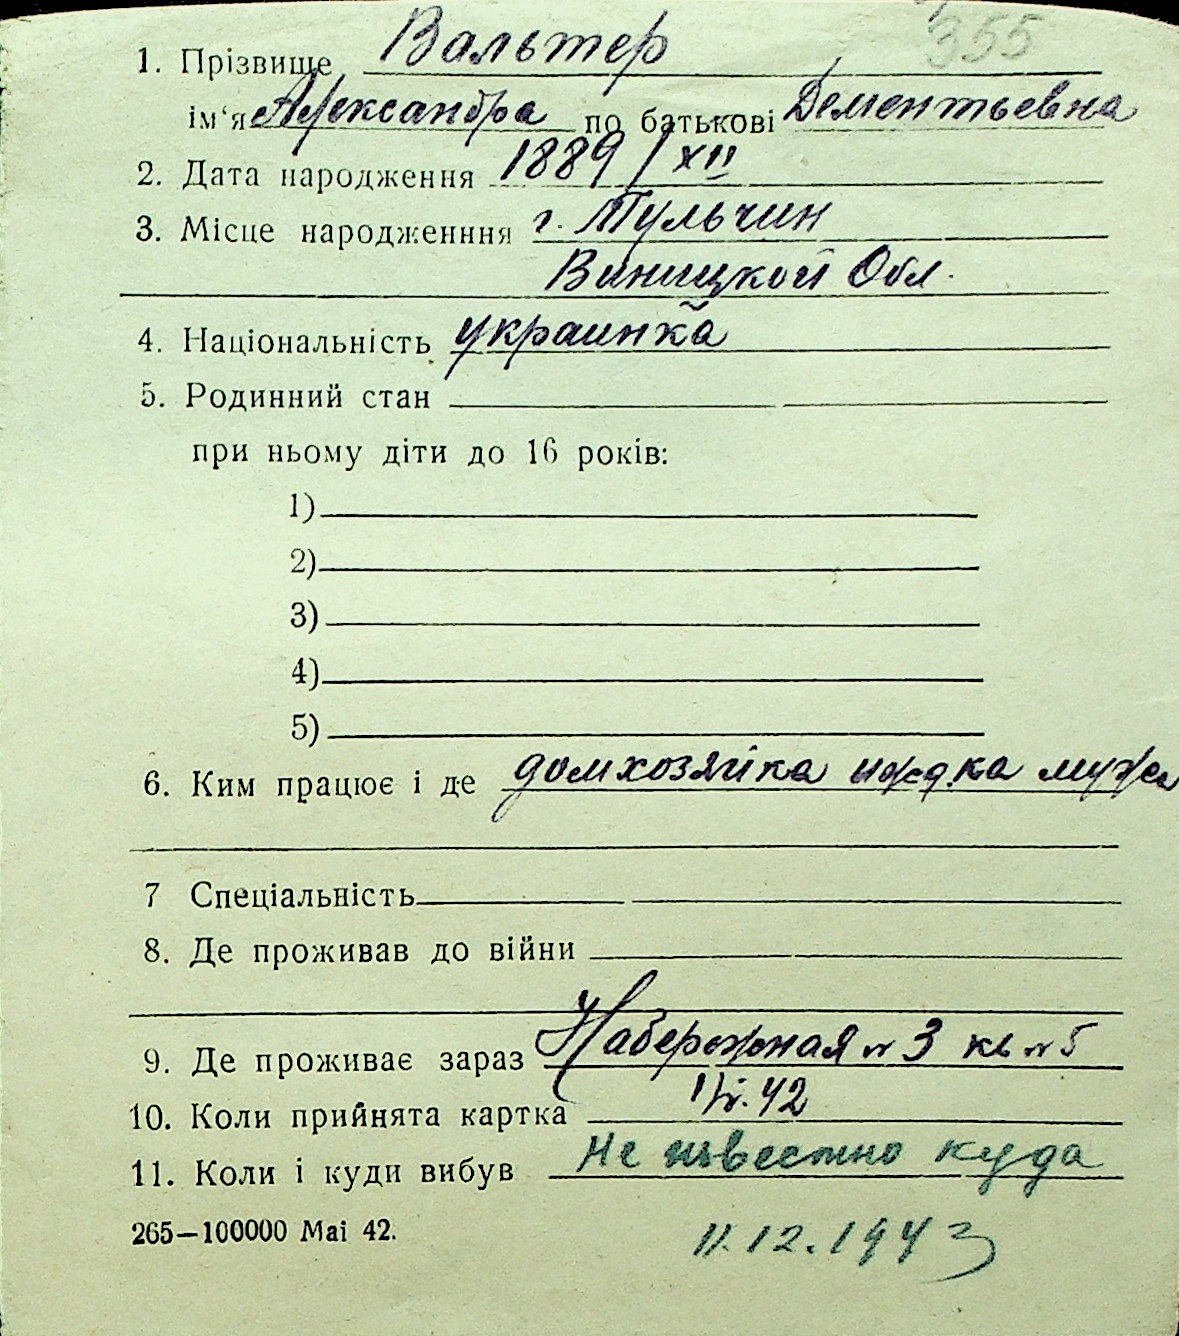 355
1. Прізвище Вальтер
ім'я Александра по батькові Дементьевна
2. Дата народження 1889 / XII
3. Місце народженння г. Тульчин
Виницкой Обл.
4. Національність украинка
5. Родинний стан
при ньому діти до 16 років:
1)
2)
3)
4)
5)
6. Ким працює і де домхозяйка ижд.ка мужа
7 Спеціальність
8. Де проживав до війни
9. Де проживає зараз Набережная № 3 кв № 5
10. Коли прийнята картка 42
11. Коли і куди вибув Не известно куда
265—100000 Mai 42.
11.12.1943